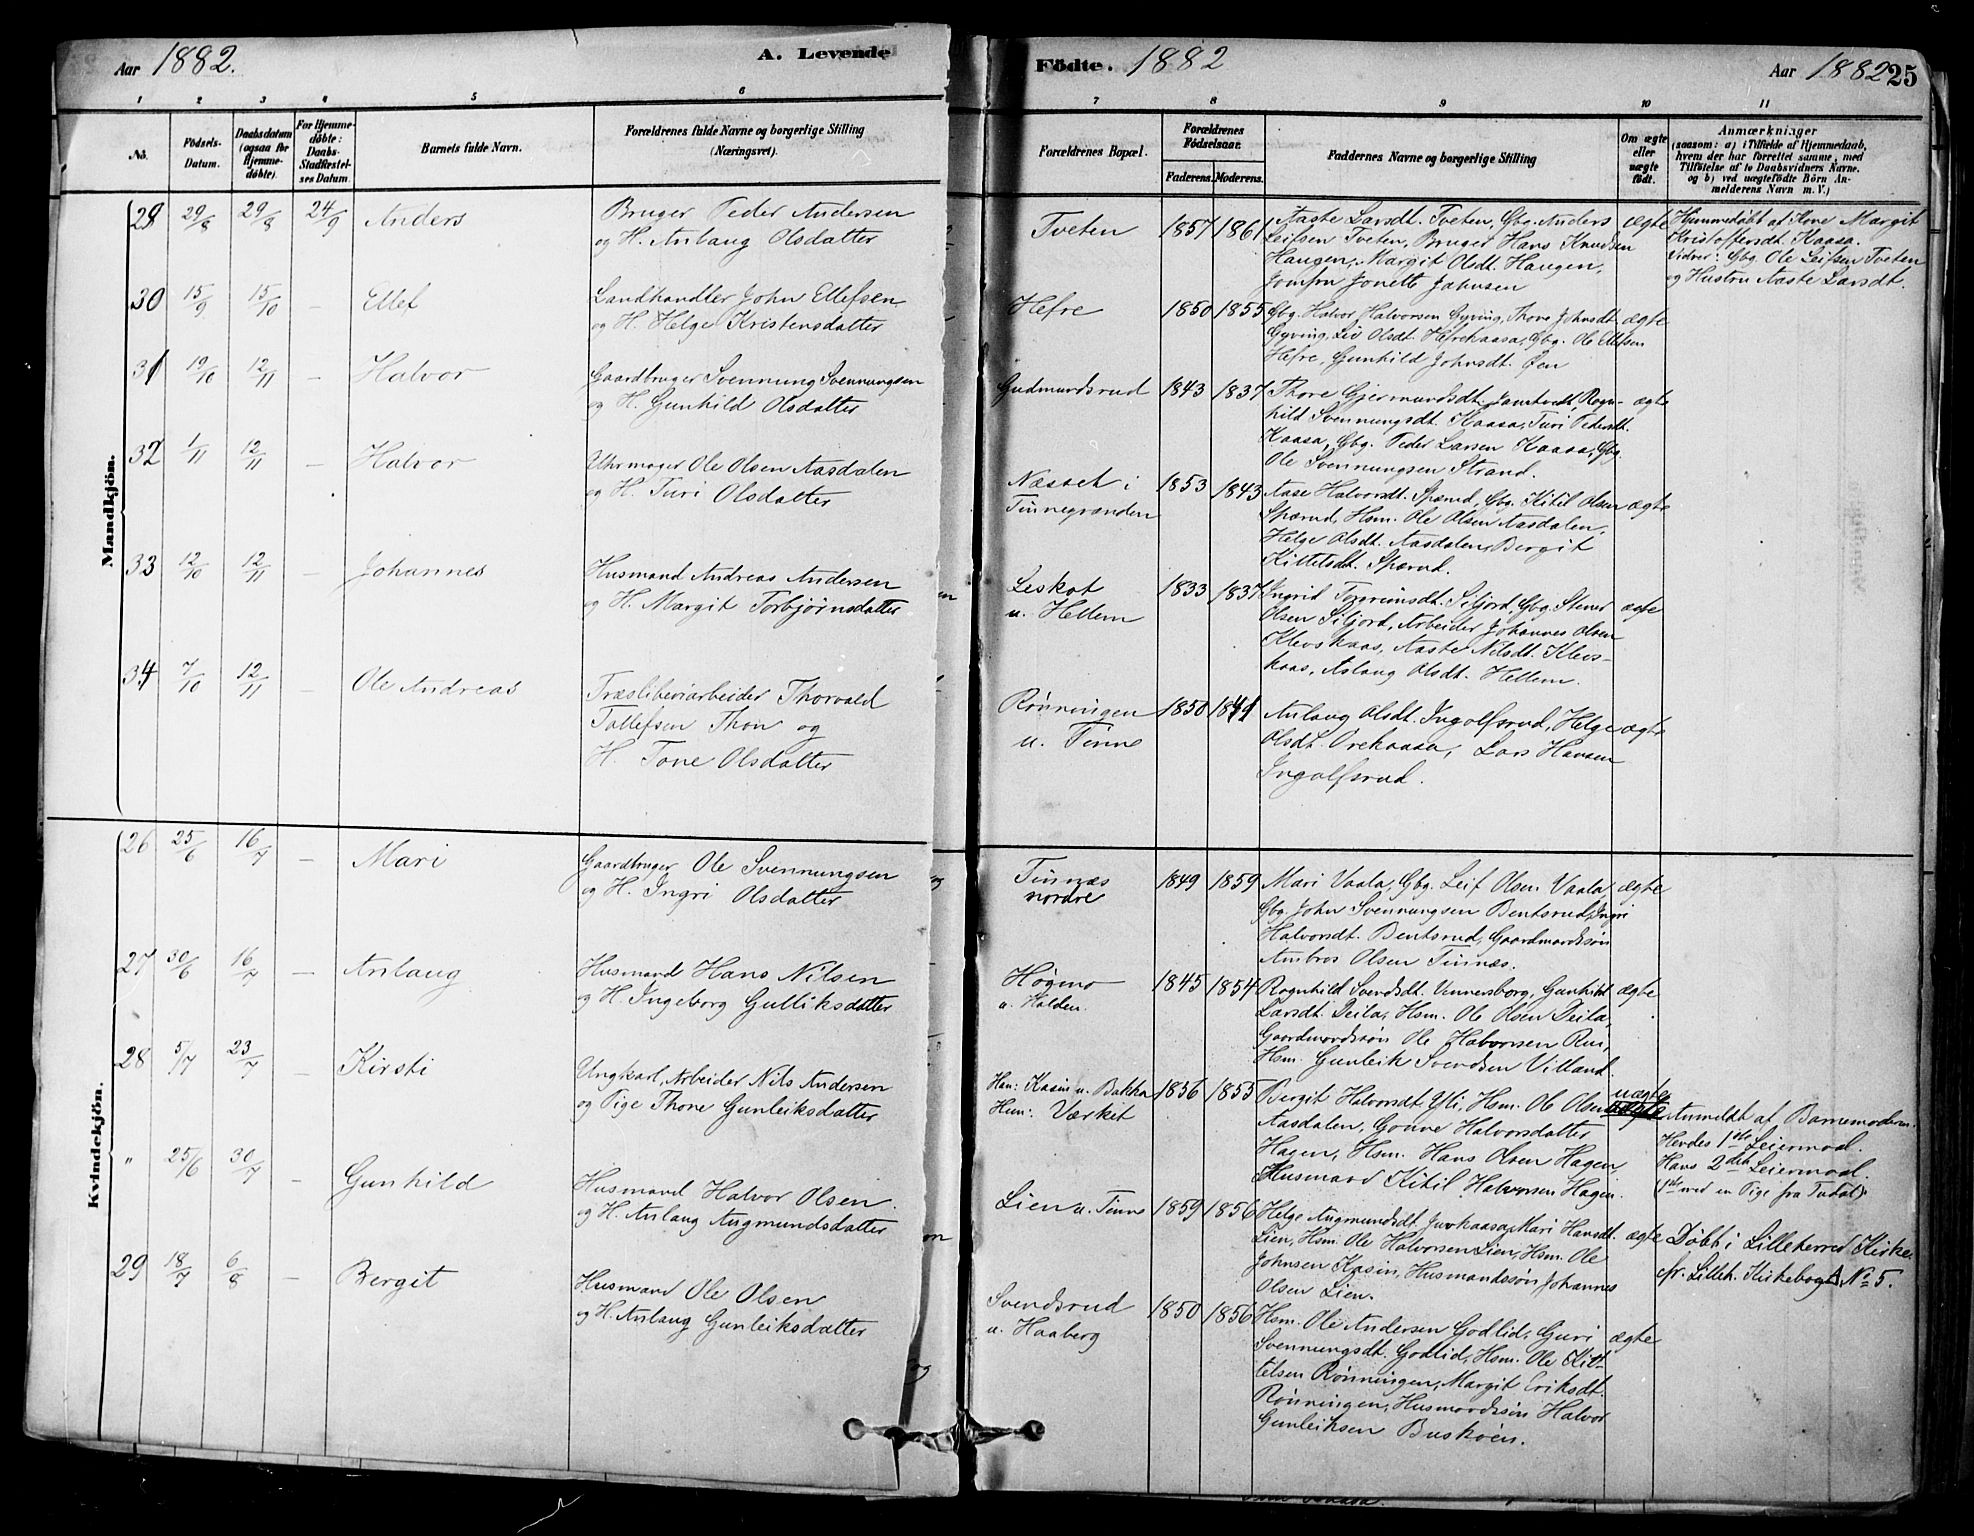 Aar 1882. A. Levende
Födte. 1882 Aar 1882 25
1 2 3 4 5 6 7 8 9 10 11
No. Födsels-Datum. Daabsdatum (ogsaa for Hjemme-döbte). For Hjemme-döbte: Daabs-Stadfæstel-ses Datum. Barnets fulde Navn. Forældrenes fulde Navne og borgerlige Stilling (Næringsvei). Forældrenes Bopæl. Forældrenes Födselsaar. Faderens. Moderens. Faddernes Navne og borgerlige Stilling Om ægte eller uægte födt. Anmærkninger
(saasom: a) i Tilfælde af Hjemmedaab, hvem der har forrettet samme, med Tilföielse af to Daabsvidners Navne. og b) ved uægtefödte Börn An-melderens Navn m. V.)
Mandkjön.
29 29/8 29/8 24/9 Anders
Bruger Peder Andersen
og H. Anlaug Olsdatter
Tveten 1857 1861
Aaste Larsdt. Tveten, Gbg. Anders
Leifsen Tveten, Bruger Hans Knudsen
Haugen, Margit Olsdt. Haugen,
Jomfru Jonette Jahnsen
ægte
Hjemmedøbt af Kone Margit
Kristoffersdt. Kaasa.
Vidner: Gbg. Ole Leifsen Tveten
og Hustru Aaste Larsdt.
30 15/9 15/10 – Ellef
Landhandler John Ellefsen
og H. Helge Kristensdatter
Hefre 1850 1855
Gbg. Halvor Halvorsen Gyving, Thone Johnsdt
Gyving, Liv Olsdt. Hefrekaasa, Gbg. Ole Ellefsen
Hefre, Gunhild Johnsdt. Øen
ægte
31 19/10 12/11 – Halvor
Gaardbruger Svennung Svennungsen
og H. Gunhild Olsdatter
Gudmundsrud 1843 1837
Thore Gjermundsdt. Jamtvedt, Ragn-
hild Svennungsdt. Kaasa, Turi Pedersdt.
Kaasa, Gbg. Peder Larsen Kaasa, Gbg.
Ole Svennungsen Strand.
ægte
32 1/11 12/11 – Halvor
Uhrmager Ole Olsen Aasdalen
og H. Turi Olsdatter
Næsset i
Tinnegranden
1853 1843
Aase Halvorsdt. Sparud, Gbg. Kitil Olsen
Sparud, Hsm. Ole Olsen Aasdalen,
Helge Olsdt. Aasdalen, Bergit
Kittelsdt. Sparud.
ægte
33 12/10 12/11 – Johannes
Husmand Andreas Andersen
og H. Margit Torbjørnsdatter
Leskot
u. Hellem
1833 1837
Ingrid Torreimsdt. Siljord, Gbg. Stener
Olsen Siljord, Arbeider Johannes Olsen
Klevskaas, Aaste Nilsdt. Klevs-
kaas, Aslaug Olsdt. Hellem.
ægte
34 7/10 12/11 – Ole Andreas
Træsliberiarbeider Thorvald
Tollefsen Thon og
H. Tone Olsdatter
Rønningen
u. Tinne
1850 1841
Anlaug Olsdt. Ingolfsrud, Helge
Olsdt. Orekaasa, Lars Hansen
Ingolfsrud.
ægte
Kvindekjön.
26 25/6 16/7 – Mari
Gaardbruger Ole Svennungsen
og H. Ingri Olsdatter
Tinnæs
nordre
1849 1859
Mari Vaala, Gbg. Leif Olsen Vaala,
Gbg. John Svennungsen Bentsrud, Ingri
Halvorsdt. Bentsrud, Gaardmandssøn
Ambros Olsen Tinnæs.
ægte
27 30/6 16/7 – Anlaug
Husmand Hans Nilsen
og H. Ingeborg Gulliksdatter
Høgmo
u. Halden.
1845 1854
Ragnhild Svendsdt. Vennersborg, Gunhild
Larsdt. Deila, Hsm. Ole Olsen Deila,
Gaardmandssøn Ole Halvorsen Rui,
Hsm. Gunleik Svendsen Villand.
ægte
28 5/7 23/7 – Kirsti
Ungkarl, Arbeider Nils Andersen
og Pige Thone Gunleiksdatter
Han: Kasin u. Bakka
Hun: Værket
1856 1855
Bergit Halvorsdt. Yli, Hsm. Ole Olsen
Aasdalen, Gonve Halvorsdatter
Hagen, Hsm. Hans Olsen Hagen,
Husmand Kitil Halvorsen Hagen.
uægte
Anmeldt af Barnemoderen.
Hendes 1ste Leiermaal.
Hans 2det Leiermaal
(1ste med en Pige fra Tudal).
" 25/6 30/7 – Gunhild
Husmand Halvor Olsen
og H. Anlaug Augmundsdatter
Lien u. Tinne 1859 1856
Helge Augmundsdt. Juvkaasa, Mari Hansdt.
Lien, Hsm. Ole Halvorsen Lien, Hsm. Ole
Johnsen Kasin, Husmandssøn Johannes
Olsen Lien.
ægte
Døbt i Lilleherred Kirke
cfr. Lilleh. Kirkebog A, No 5.
29 18/7 6/8 – Bergit
Husmand Ole Olsen
og H. Anlaug Gunleiksdatter
Svendsrud
u. Haaberg
1850 1856
Hsm. Ole Andersen Godlid, Guri
Svennungsdt. Godlid, Hsm. Ole Kit-
telsen Rønningen, Margit Eriksdt.
Rønningen, Husmandssøn Halvor
Gunleiksen Buskøen.
ægte